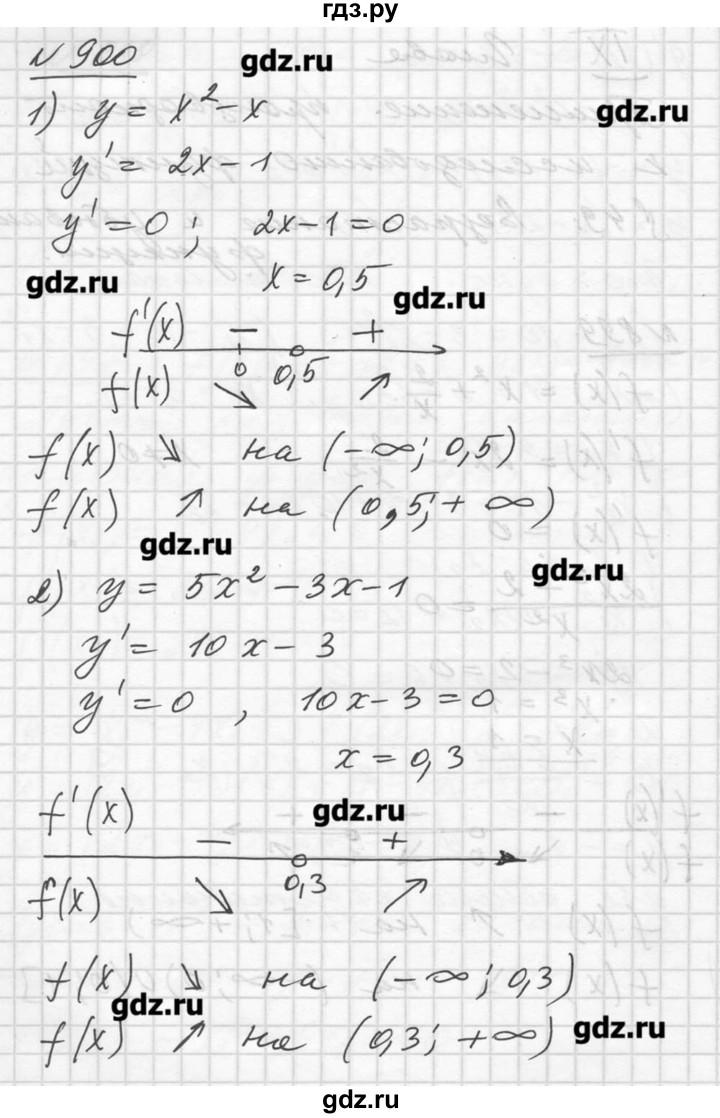 гдз.ру
N 900
gdz.ru
1) y = x² - x
gdz.ru
y' = 2x - 1
y' = 0 ; 2x - 1 = 0
gdz.ru
x = 0,5
gdz.ru
f'(x) − +
0 0,5
f(x) ↘ ↗
f(x) ↘ на (-∞; 0,5)
f(x) ↗ на (0,5; + ∞)
gdz.ru
gdz.ru
2) y = 5x² - 3x - 1
y' = 10x - 3
y' = 0 , 10x - 3 = 0
x = 0,3
f'(x)
gdz.ru
− +
0,3
f(x) ↘ ↗
f(x) ↘ на (-∞; 0,3)
gdz.ru
f(x) ↗ на (0,3; +∞)
gdz.ru
gdz.ru